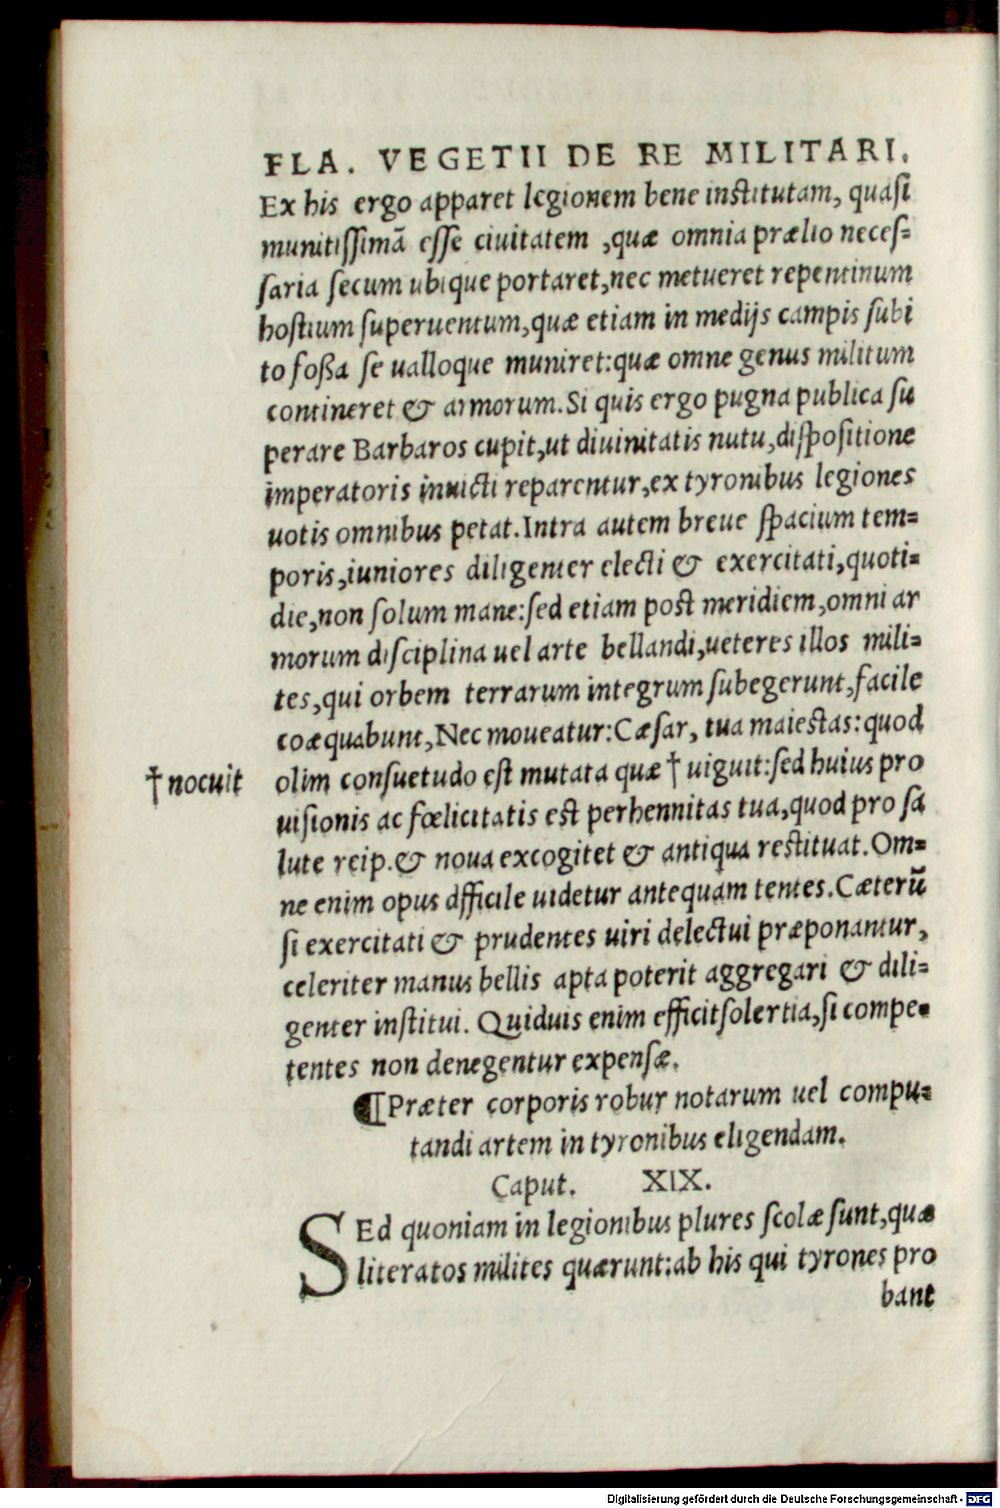 FLA. VEGETII DE RE MILITARI.
Ex his ergo apparet legionem bene institutam, quasi
munitissimā esse ciuitatem ,quæ omnia prælio neces=
saria secum ubique portaret,nec metueret repentinum
hostium superuentum,quæ etiam in medijs campis subi
to foßa se ualloque muniret:quæ omne genus militum
contineret & armorum.Si quis ergo pugna publica su
perare Barbaros cupit,ut diuinitatis nutu,dispositione
imperatoris inuicti reparentur,ex tyronibus legiones
uotis omnibus petat.Intra autem breue spacium tem=
poris,iuniores diligenter electi & exercitati,quoti=
die,non solum mane:sed etiam post meridiem,omni ar
morum disciplina uel arte bellandi,ueteres illos mili=
tes,qui orbem terrarum integrum subegerunt,facile
coæquabunt,Nec moueatur:Cæsar, tua maiestas:quod
†nocuit
olim consuetudo est mutata quæ † uiguit:sed huius pro
uisionis ac fœlicitatis est perhennitas tua,quod pro sa
lute reip.& noua excogitet & antiqua restituat.Om=
ne enim opus dfficile uidetur antequam tentes.Cæterū
si exercitati & prudentes uiri delectui præponantur,
celeriter manus bellis apta poterit aggregari & dili=
genter institui. Quiduis enim efficit solertia,si compe=
tentes non denegentur expensæ.
¶Præter corporis robur notarum uel compu=
tandi artem in tyronibus eligendam.
Caput. XIX.
SEd quoniam in legionibus plures scolæ sunt,quæ
literatos milites quærunt:ab his qui tyrones pro
bant
Digitalisierung gefördert durch die Deutsche Forschungsgemeinschaft - DFG